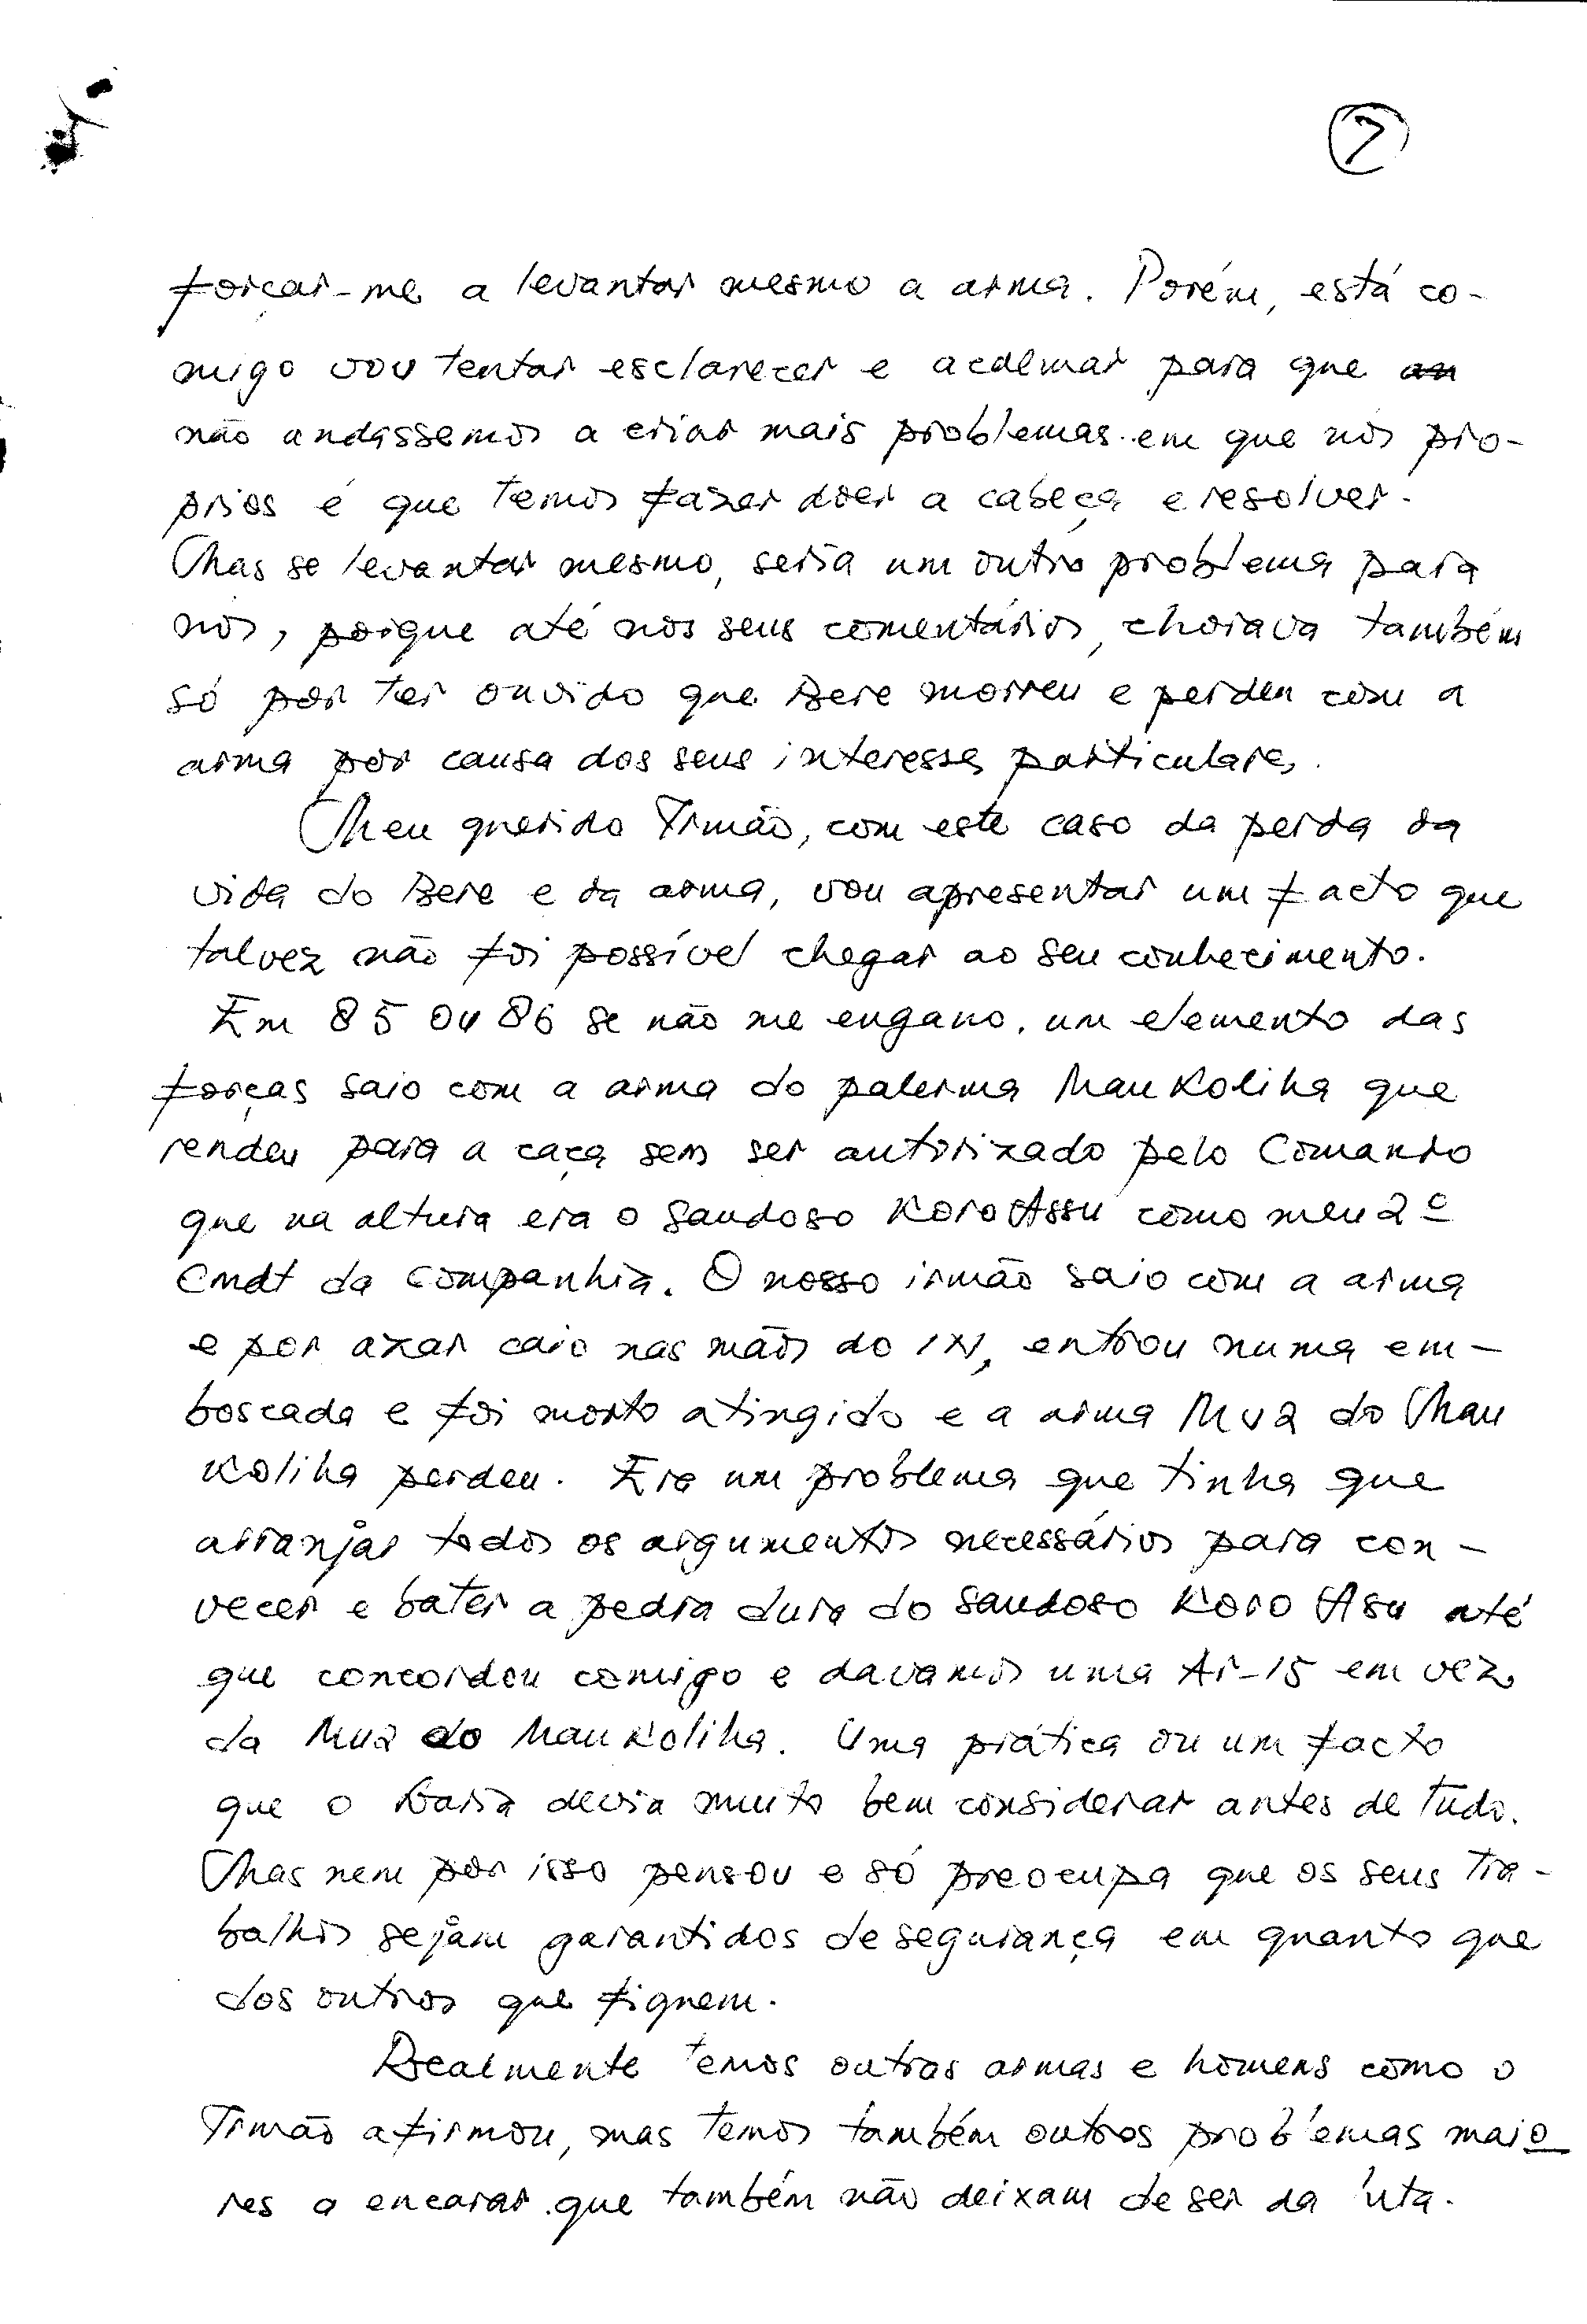 7
forçar-me a levantar mesmo a arma. Porém, está co-
migo vou tentar esclarecer e acalmar para que
não andássemos a criar mais problemas em que nós pro-
prios é que temos fazer doer a cabeça e resolver.
Mas se levantar mesmo, seria um outro problema para
nós, porque até nos seus comentários, chorava também
só por ter ouvido que Bere morreu e perdeu com a
arma por causa dos seus interesses particulares.
Meu querido Irmão, com este caso da perda da
vida do Bere e da arma, vou apresentar um facto que
talvez não foi possível chegar ao seu conhecimento.
Em 85 ou 86 se não me engano, um elemento das
forças saio com a arma do palerma Mau Koliha que
rendeu para a caça sem ser autorizado pelo Comando
que na altura era o saudoso Koro Assu como meu 2º
Cmdt da Companhia. O nosso irmão saio com a arma
e por azar caio nas mãos do IN, entrou numa em-
boscada e foi morto atingido e a arma Mu2 do Mau
Koliha perdeu. Era um problema que tinha que
arranjar todos os argumentos necessários para con-
vecer e bater a pedra dura do saudoso Koro Asu até
que concordou comigo e davamos uma Ar-15 em vez
da Mu2 do Mau Koliha. Uma prática ou um facto
que o devia muito bem considerar antes de tudo.
Mas nem por isso pensou e só preocupa que os seus tra-
balhos sejam garantidos de segurança em quanto que
dos outros que fiquem.
Realmente temos outras armas e homens como o
Irmão afirmou, mas temos também outros problemas maio
res a encarar que também não deixam de ser da luta.